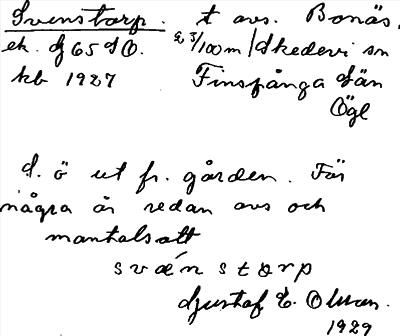 Svenstorp. t avs. Bonäs,
ek. bl 65 SO. 2 3/100 m / Skedevi sn
kb 1927 Finspånga län
Ögl
S. ö ut fr. gården. För
några år sedan avs och
mantalsatt
svǽnstɵrp
Gustaf E. Olsson.
1929